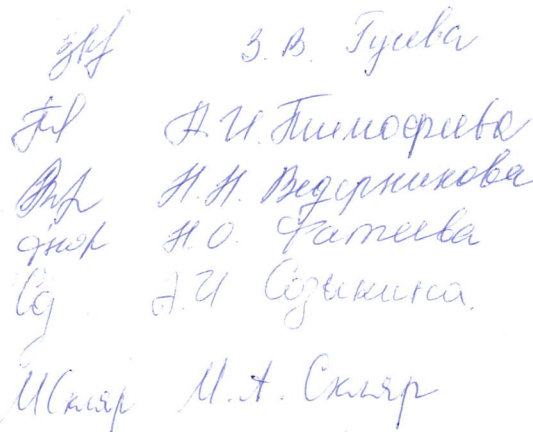 З. В. Гусева
А. И. Тимофеева
Н. Н. Ведерникова
Н. О. Фатеева
А. И Созыкина.
МСкляр М. А. Скляр